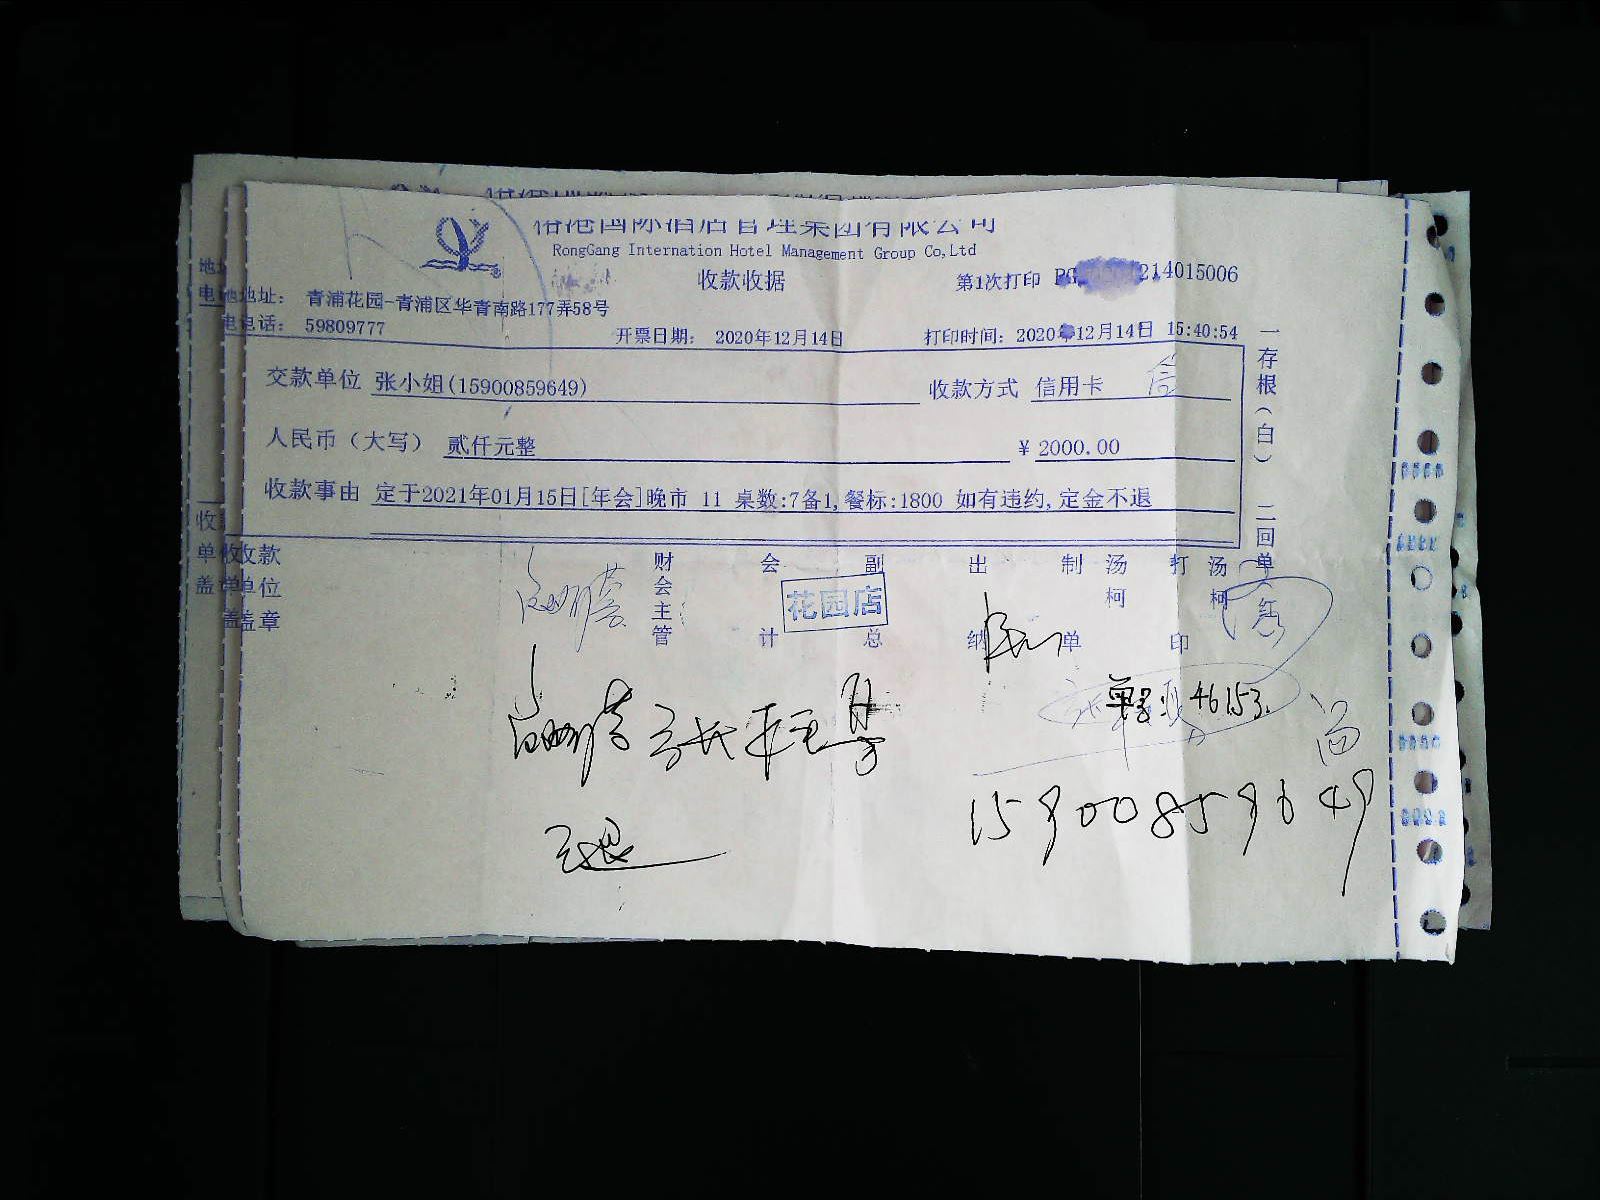 国际酒店管理集团有限公司
RongGang Internation Hotel Management Group Co,Ltd
收款收据
第1次打印 214015006
地址: 青浦花园-青浦区华青南路177弄58号
电话: 59809777
开票日期: 2020年12月14日
打印时间: 2020年12月14日 15:40:54
交款单位 张小姐(15900859649)
收款方式 信用卡
人民币（大写） 贰仟元整 ¥2000.00
收款事由 定于2021年01月15日[年会]晚市 11 桌数:7备1,餐标:1800 如有违约,定金不退
一存根(白) 二回单
收款单位盖章
财会主管 会计 副总 出纳 制单 汤柯 打印 汤柯
花园店
46153.
15900859649